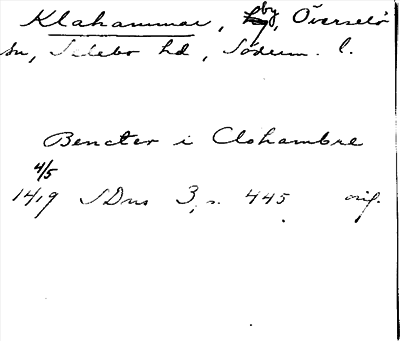 Klahammar, by, Överselö
sn, Selebo hd, Söderm. l.
Bencter i Clohambre
4/5
1419 SDns 3, s. 445 orig.